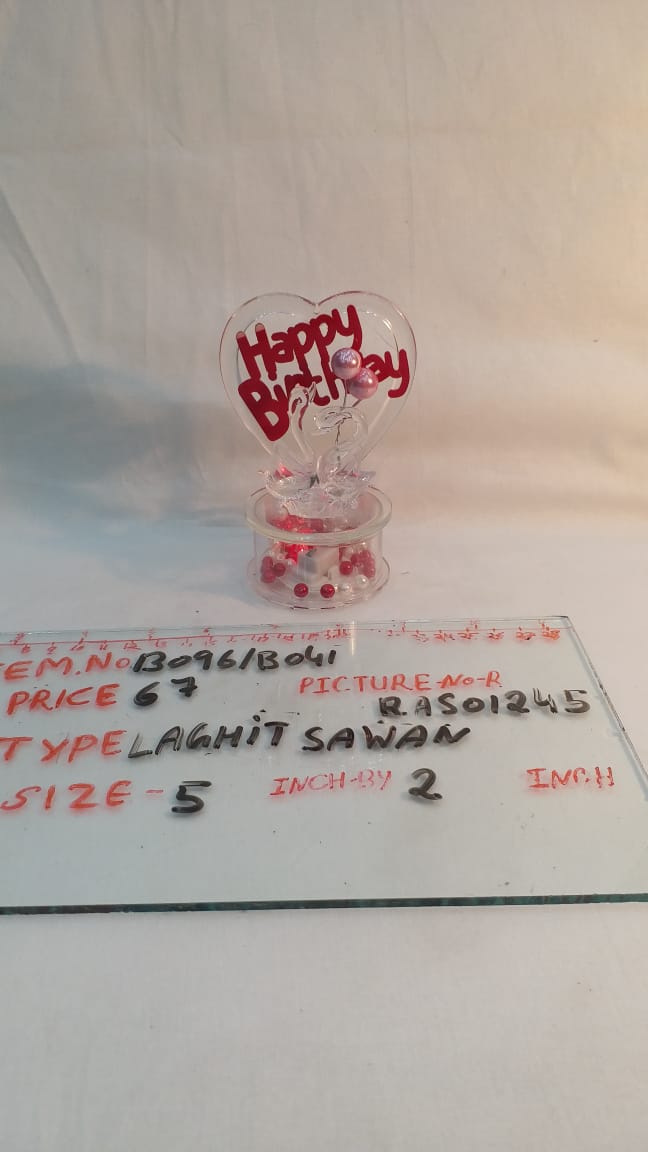 Happy
Birthday
EM.No B096/B041
PRICE 67
PICTURE-No-R
R.ASO1245
TYPE LAGHiT SAWAN
SIZE - 5 INCH-BY 2 INCH